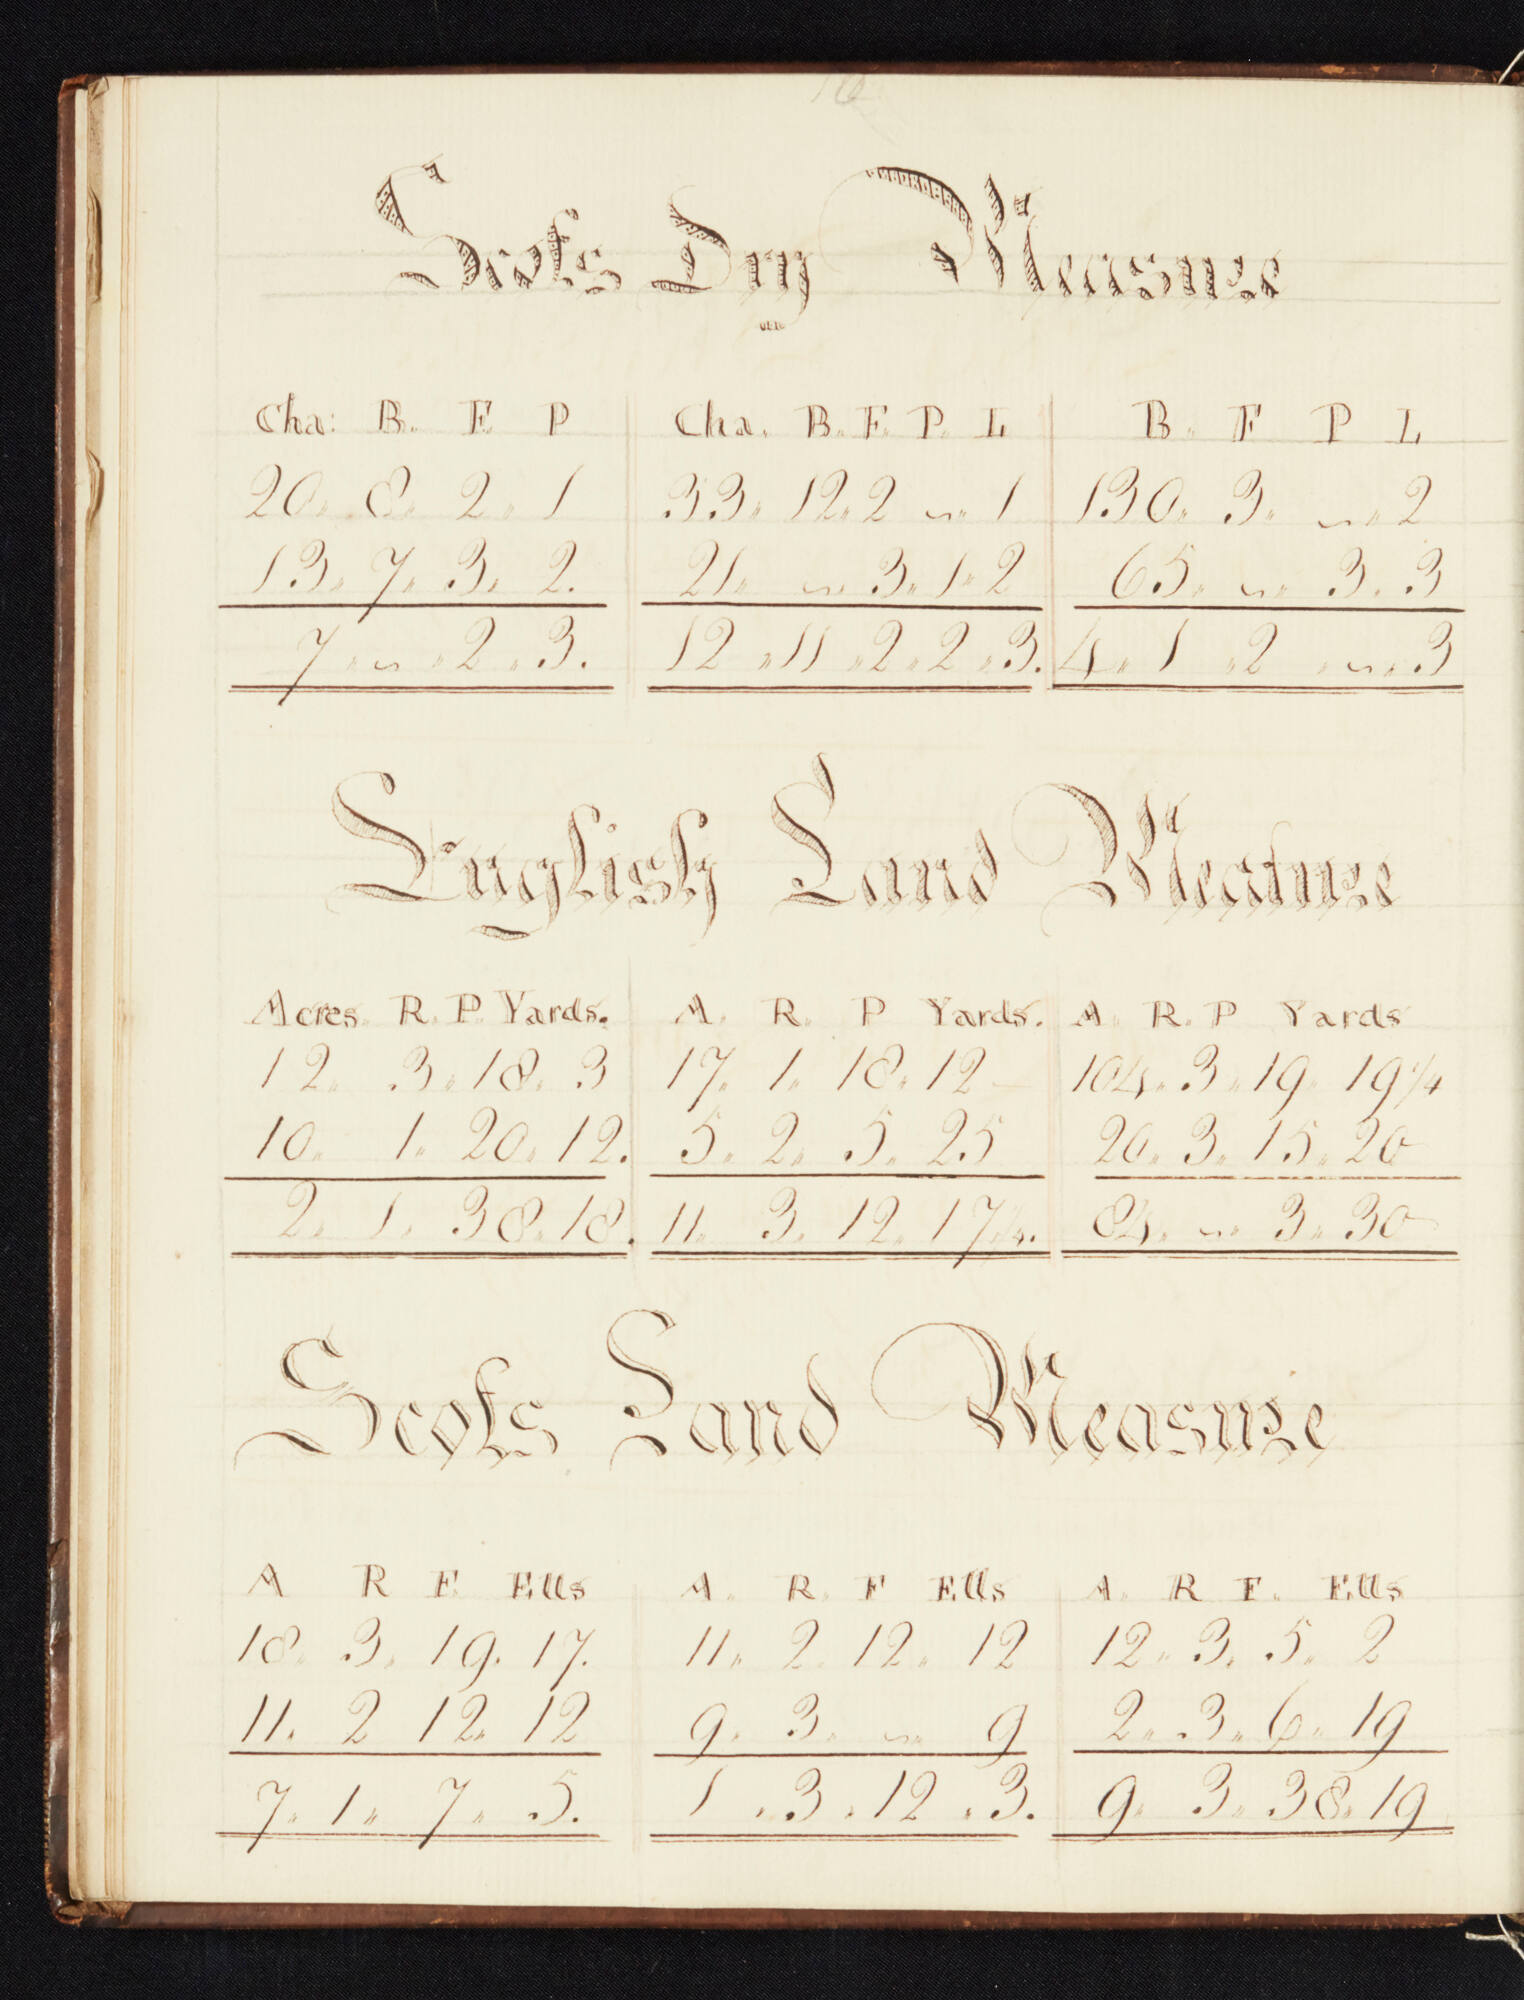 16
Scots Dry Measure
Cha: B. F. P Cha. B. F. P. L B. F P L
20 8 2 1 33 12 2 ~ 1 130 3 ~ 2
13 7 3 2. 21 ~ 3 1 2 65 ~ 3 3
7 ~ 2 3. 12 11 2 2 3. 4 1 2 ~ 3
English Land Measure
Acres R. P. Yards. A. R. P Yards. A. R. P Yards
12 3 18 3 17 1 18 12 104 3 19 19 1/4
10 1 20 12. 5 2 5 25 20 3 15 20
2 1 38 18. 11 3 12 17 1/4. 84 ~ 3 30
Scots Land Measure
A R F. Ells A. R. F Ells A. R F. Ells
18 3 19 17. 11 2 12 12 12 3 5 2
11. 2 12 12 9 3 ~ 9 2 3 6 19
7 1 7 5. 1 3 12 3. 9 3 38 19